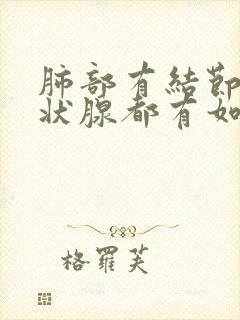 肺部有結節
狀腺都有如
格羅芙